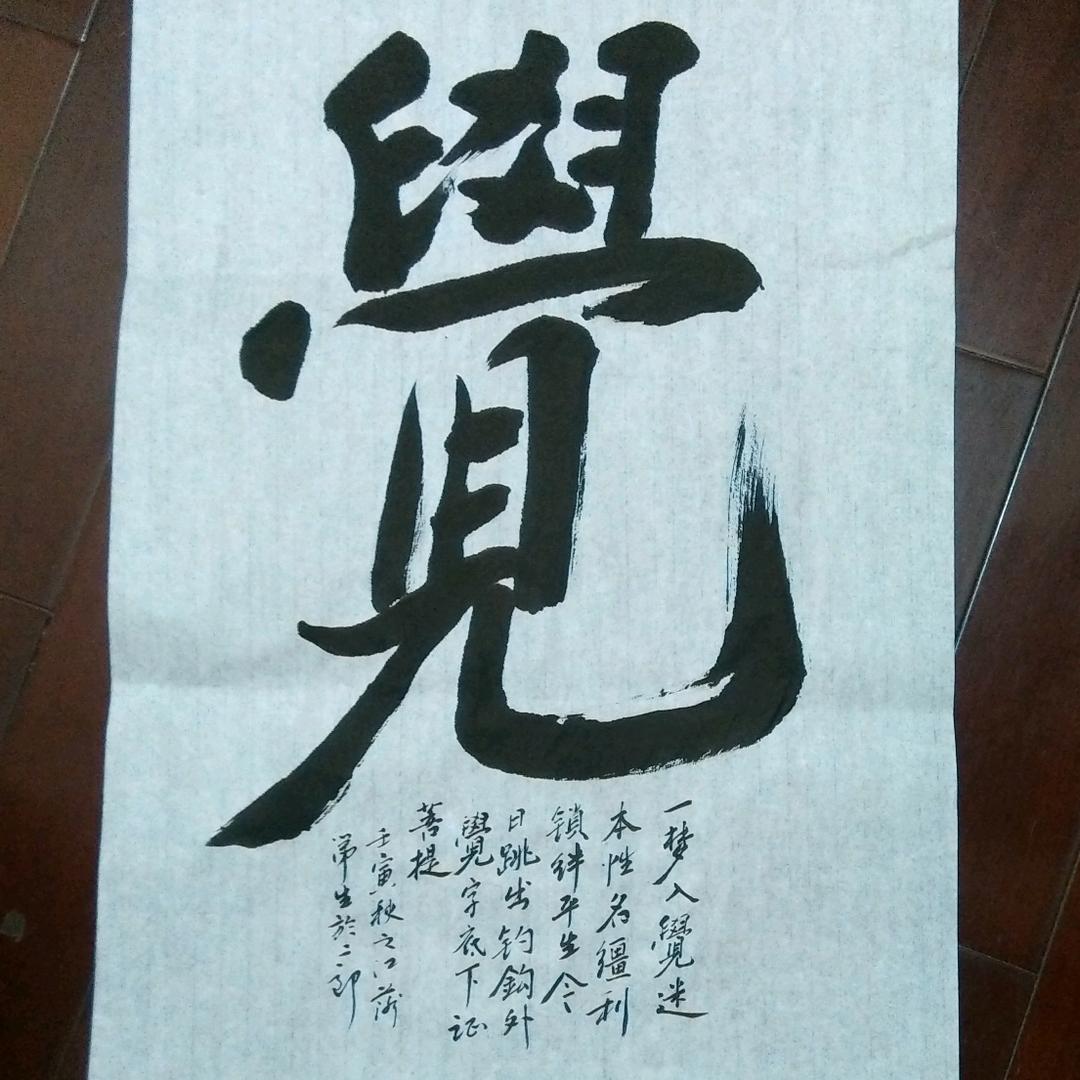 覺
一梦入覺迷
本性名疆利
锁绊平生今
日跳出钓鈎外
覺字底下证
菩提
壬寅秋之江
常生於二郎